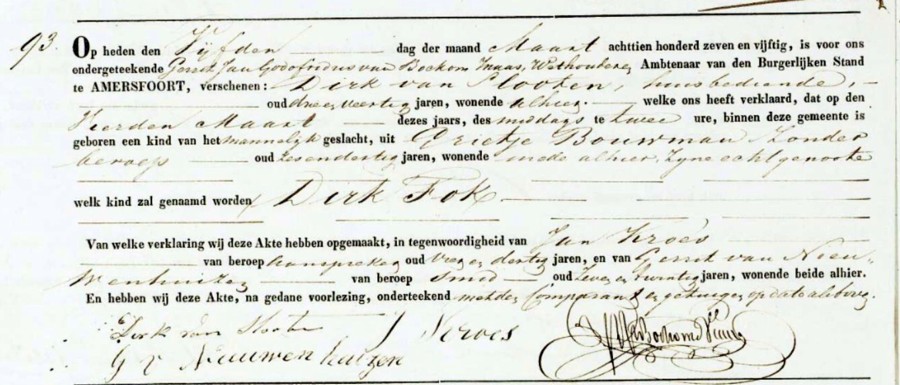 93.
Op heden den Vijfden dag der maand Maart achttien honderd zeven en vijftig, is voor ons
ondergeteekende Gerrit Jan Godofridus van Bockom Maas, Wethouder, Ambtenaar van den Burgerlijken Stand
te AMERSFOORT, verschenen: Dirk van Slooten, huisbediende,
oud drie en veertig jaren, wonende alhier welke ons heeft verklaard, dat op den
Vierden Maart dezes jaars, des middags te twee ure, binnen deze gemeente is
geboren een kind van het mannelijk geslacht, uit Grietje Bouwman Zonder
beroep oud zes en dertig jaren, wonende mede alhier, zyne echtgenoote
welk kind zal genaamd worden Dirk Fok
Van welke verklaring wij deze Akte hebben opgemaakt, in tegenwoordigheid van Jan Kroes
van beroep oud en dertig jaren, en van Gerrit van Nieu-
wenhuizen van beroep smid oud zeven en twintig jaren, wonende beide alhier.
En hebben wij deze Akte, na gedane voorlezing, onderteekend met den Comparant en getuigen, op dato als boven.
Dirk van Slooten J Kroes
G v Nieuwenhuizen